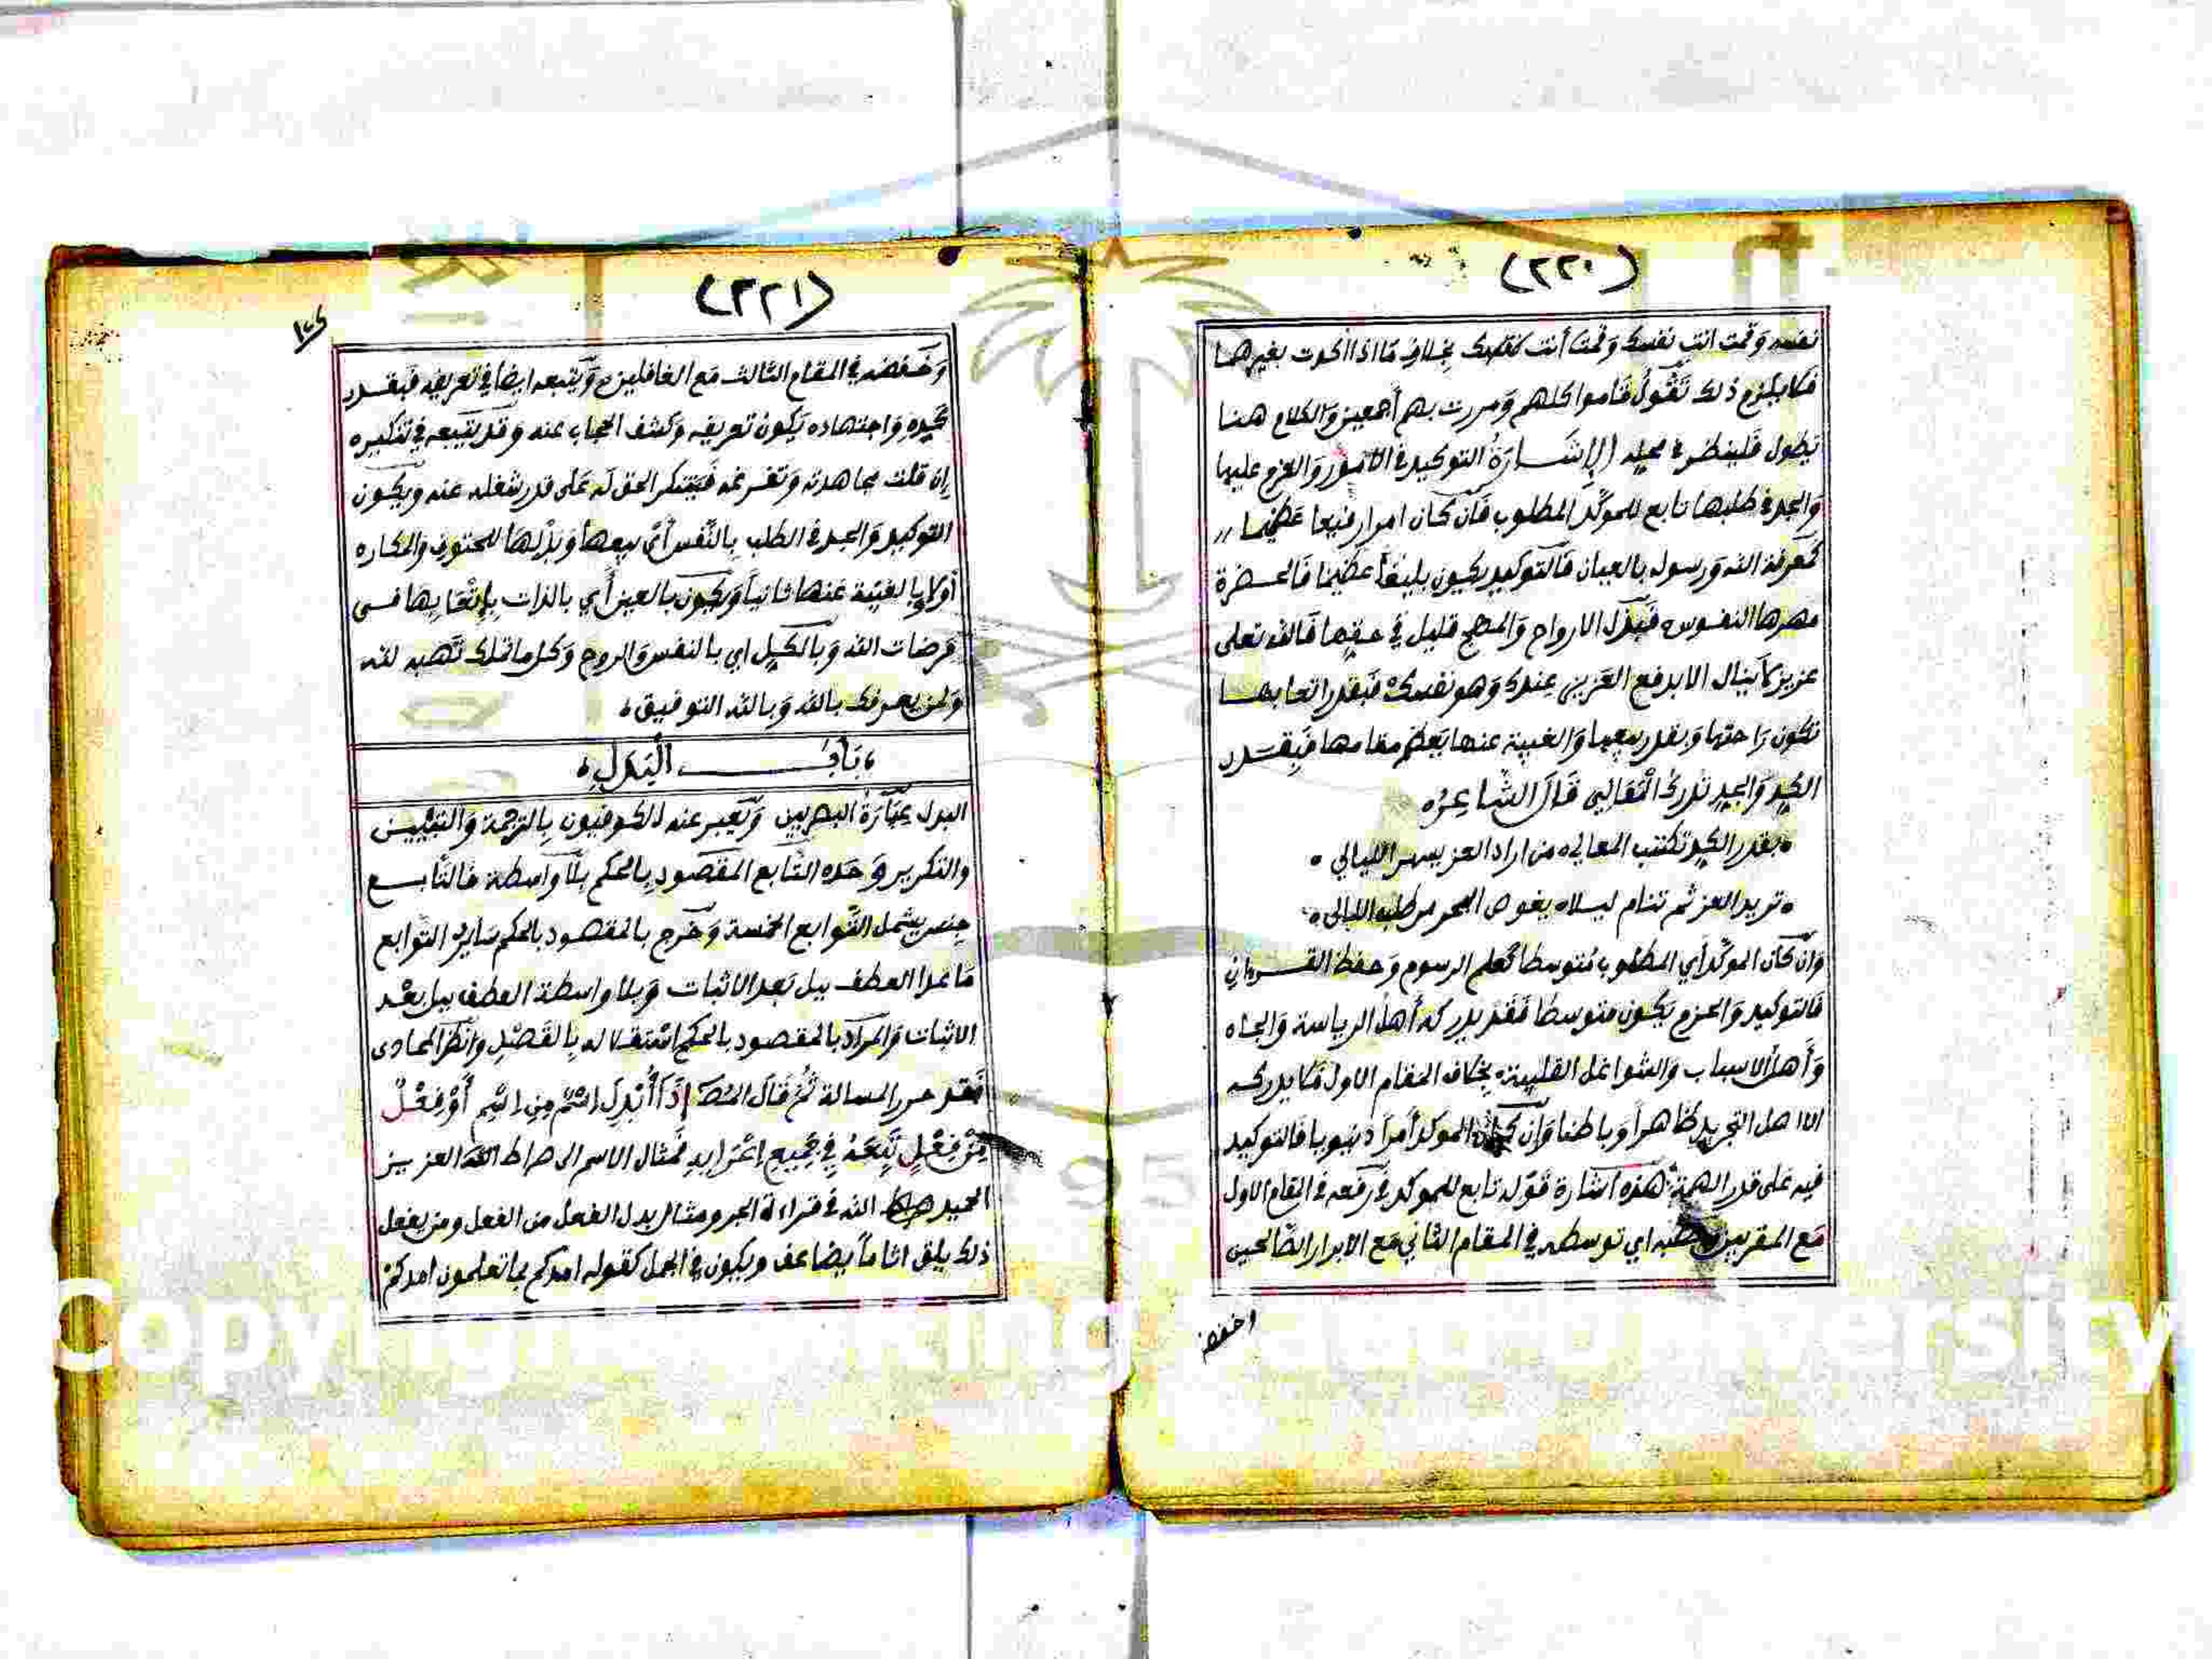 (٢٢٠)
نفسه وقمت انت نفسك وقمتَ أنت نفسك بخلاف مَا اذا اكدت بغيرهما
فلا يلزم ذلك تَقُولُ قاموا كلهم وَمررت بهم أجمعين وَالكلام هنا
يطول فلينظر في محله الإشَارَةُ التوكيد في الأمور وَالعزم عليها
وَالجد في طلبها تابع للموكَّد المطلوب فَان كان امرا رفيعا عَظيما
كمَعرفة الله وَرسوله بالعيان فَالتوكيد يكون بليغاً عَظيما فَالحضرة
مهرها النفوس فبذل الارواح وَالمهج قليل في حقها فالله تعلى
عزيز لا ينال الا بدفع العَزيز عندك وَهو نفسكْ فبقدر اتعابها
تكون رَاحتها وَبقدر بيعها وَالغيبة عنها يَعظم مقامها فَبِقَدر
الكد وَالجد تدرك الْمَعَالِي قَالَ الشاعِرُ
بقدر الكد تكتسب المعالي من اراد العز يسهر الليالي
تريد العز ثم تنام ليلا يغوص البحر من طلب اللئالي
وَان كان الموكَّد أي المطلوب مُتوسطا كعلم الرسوم وَحفظ القرءان
فَالتوكيد وَالحزم يَكون متوسطا فَقد يدركه أهل الرياسة وَالجاه
وَأهل الاسباب وَالشواغل القلبية بخلاف المقام الاول فلا يدركه
الا اهل التجريد ظاهراً وَباطنا وَان كان الموكد أمراً دنيويا فَالتوكيد
فيه عَلى قدر الهمة هذه اشارة قَوله تابع للموكد في رَفعه في المقام الاول
مَع المقربين ونصبه اي توسطه في المقام الثاني مَع الابرار الصالحين
وخفضه
(٢٢١)
وَخَفضه في المقام الثالث مَع الغافلين وَيَتبعه ايضا في تعريفه فَبقدر
كده وَاجتهاده يَكون تعريفه وَكشف الحجاب عنه وَقد يَتبعه في تنكيره
إن قلت مجاهدته وَتفرغه فَيتنكر الحق له عَلى قدر شغله عنه وَيكون
التوكيد وَالجد في الطلب بِالنَّفس أي ببيعها وَبذلها للحتوف وَالمكاره
أولا بالغيبة عَنها ثانياً وَيكون بالعين أي بالذات بإتعَابها في
مَرضات الله وَبالكل اي بالنفس وَالروح وَكل ما تملك تَهبه لله
وَلمن يعرفك بالله وَبالله التوفيق
بَابُ الْبَدَلِ
البدل عِبَارَةُ البصريين وَيُعبر عنه الكوفيون بِالترجمة وَالتبيين
وَالتكرير وَحَده التابع المقصود بالحكم بلا وَاسطة فالتابع
جنس يشمل التوابع الخمسة وَخرج بالمقصود بالحكم سَاير التوابع
مَا عدا العطف ببل بَعد الاثبات وَبلا واسطة العطف ببل بعْد
الاثبات وَالمراد بالمقصود بالحكم استقلاله بِالقَصْدِ وانظر المحاذى
فَقد حرر المسالة ثُم قَالَ المُصَ إِذَا أُبْدِلَ اسْمٌ مِنِ اسْمٍ أَوْ فِعْلٌ
مِنْ فِعْلٍ تَبِعَهُ فِي جَمِيعِ إِعْرَابِهِ فمثال الاسم الى صراط العزيز
الحميد الله في قراءة الجر ومثال بدل الفعل من الفعل ومن يفعل
ذلك يلق اثاماً يضاعف ويكون في الجمل كقوله امدكم بما تعلمون امدكم